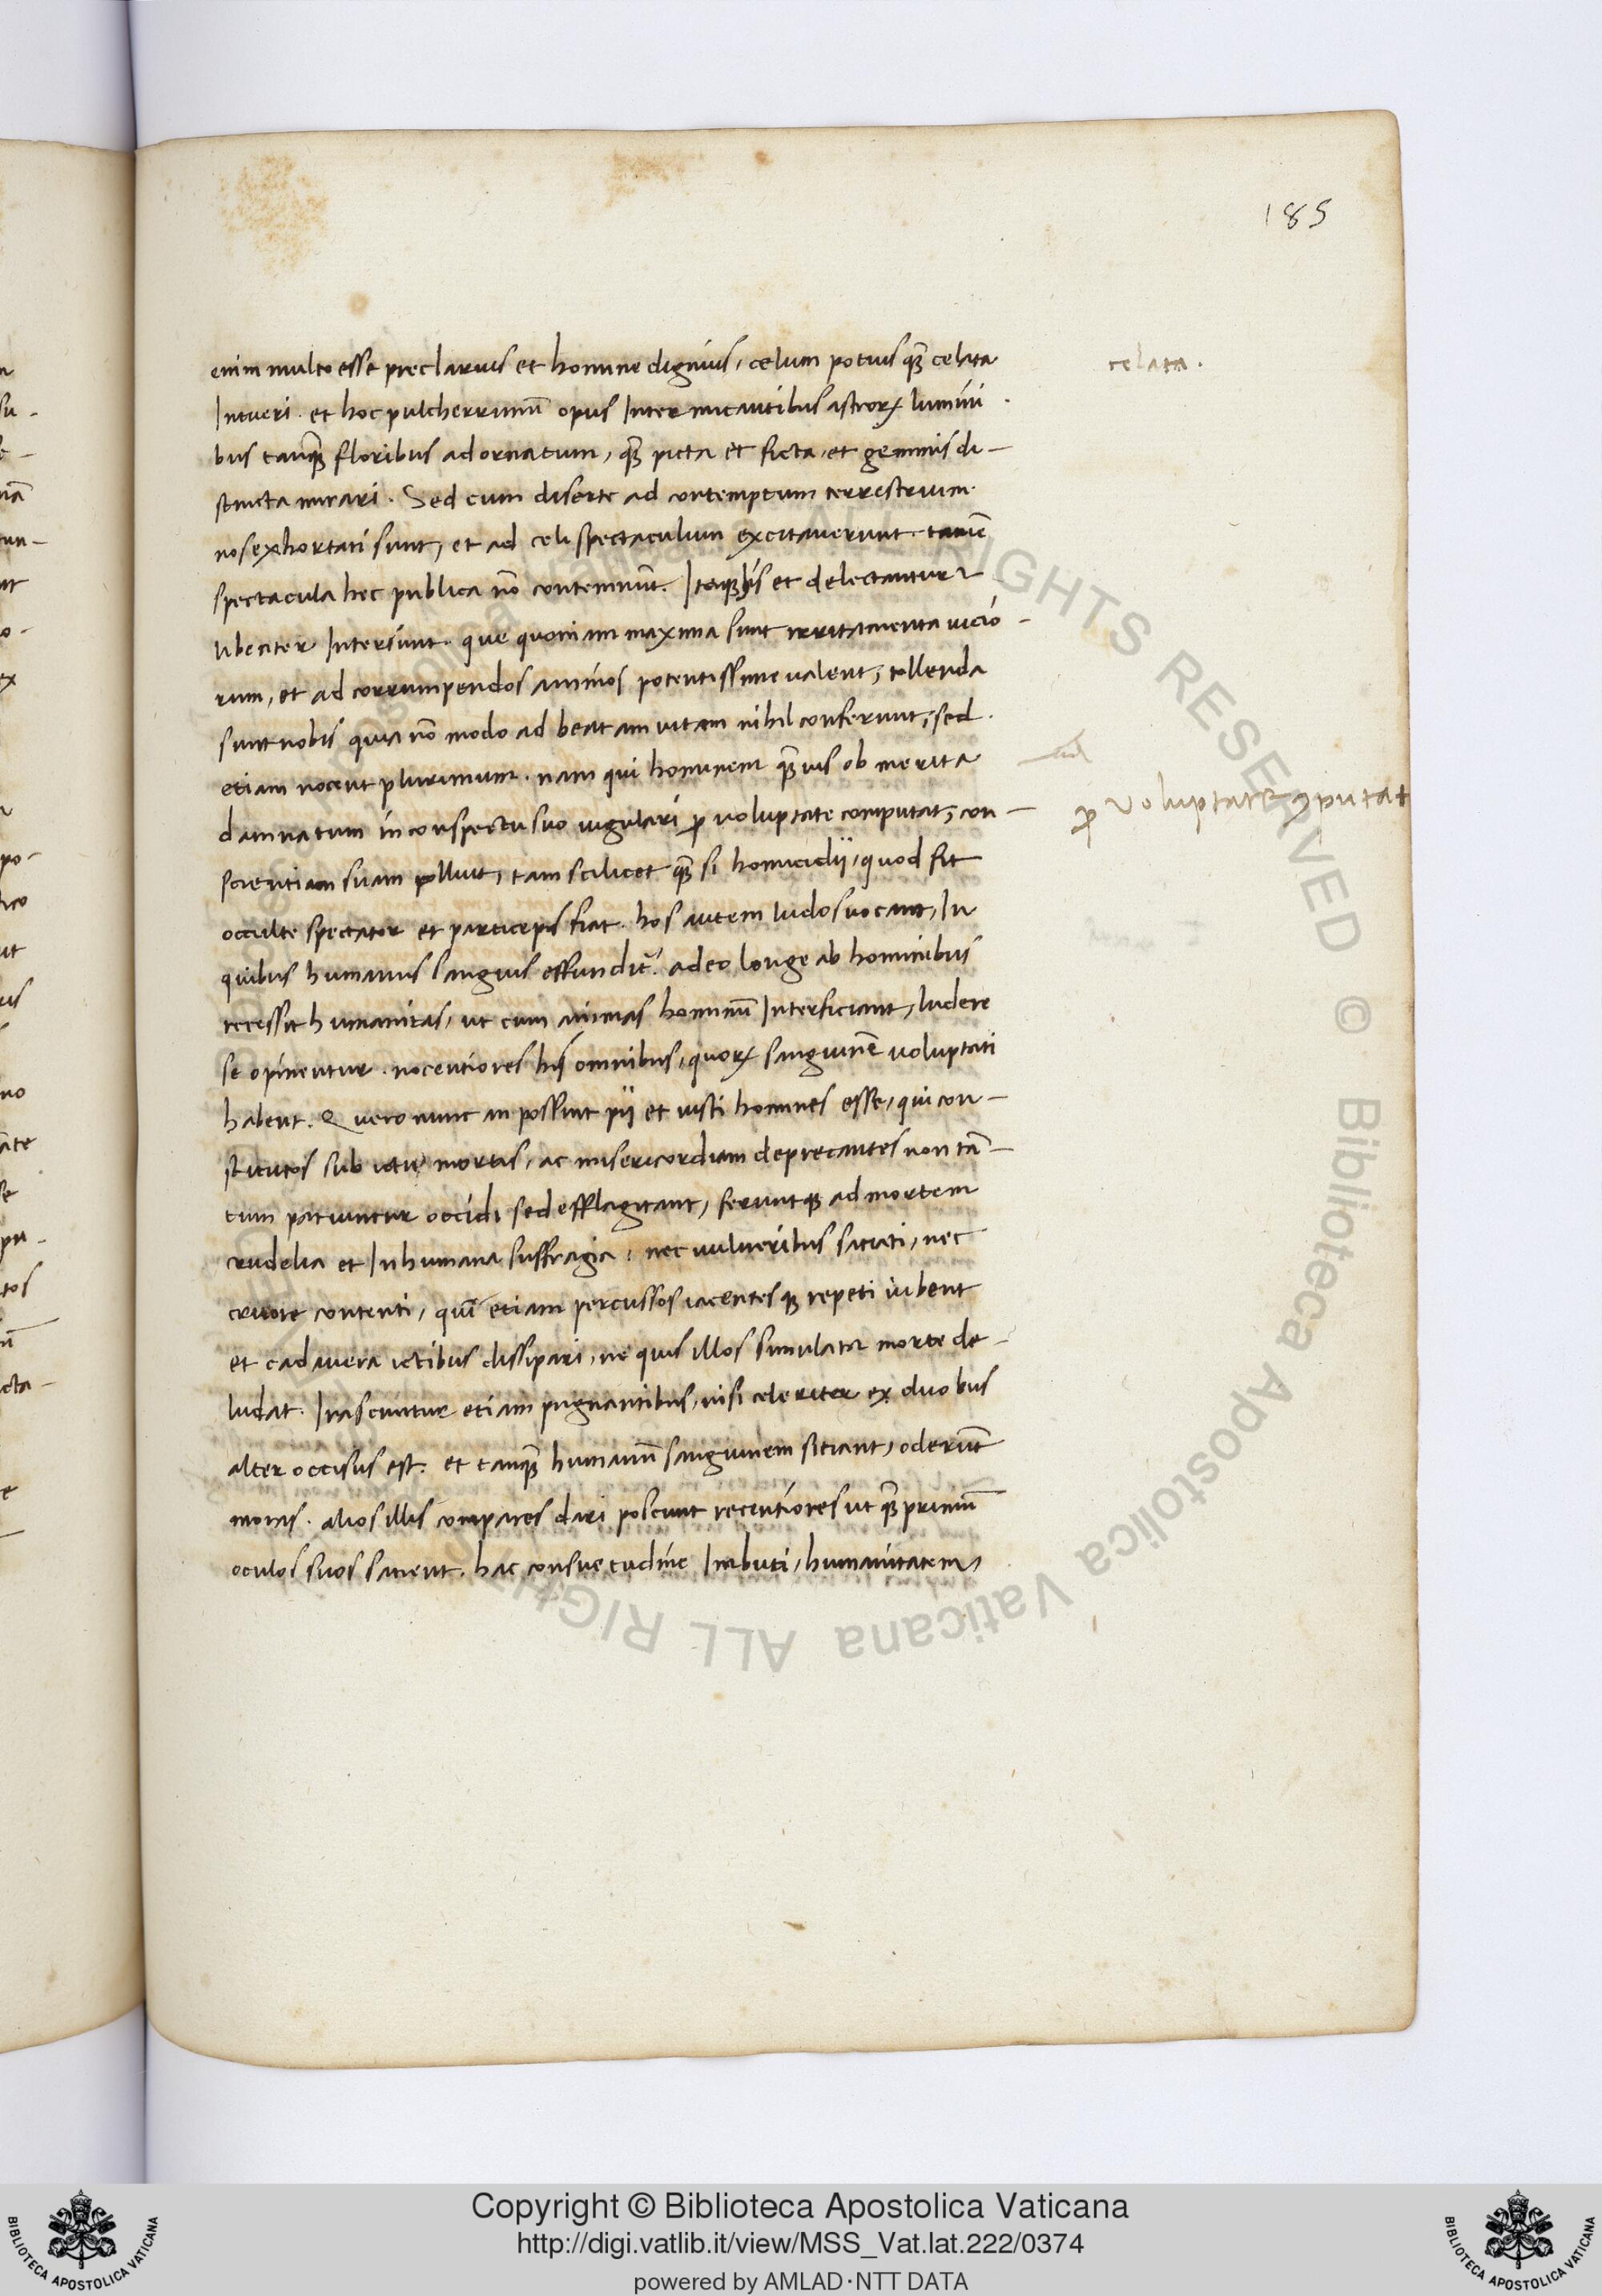 185
enim multo esse preclarius et homine dignius, celum potius qȝ celata
celata.
Intueri. et hoc pulcherrimū opus Inter micantibus astrorꝝ lumini
bus tanqȝ floribus adornatum, qȝ picta et ficta, et gemmis di-
stincta mirari. Sed cum diserte ad contemptum terrestrium
nos exhortati sunt, et ad celi spectaculum excitauerunt. tamē
spectacula hec publica nō contemnūt. Itaqȝ his et delectantur
libenter Intersunt. que quoniam maxima sunt irritamenta uicio-
rum, et ad corrumpendos animos potentissime ualent, tollenda
sunt nobis quia nō modo ad beatam uitam nihil conferunt, sed
etiam nocent plurimum. nam qui hominem qȝuis ob merita
damnatum in conspectu suo iugulari ꝓ uoluptate computat, con-
ꝓ uoluptate ꝯputat
scientiam suam polluit, tam scilicet qȝ si homicidii, quod fit
occulte spectator et particeps fiat. hos autem ludos uocant, In
quibus humanus sanguis effundit᷑. adeo longe ab hominibus
recessit humanitas, ut cum animas hominū Interficiant, ludere
se opinentur. nocentiores his omnibus, quorꝝ sanguinē uoluptati
habent. Quero nunc an possint pii et iusti homines esse, qui con-
stitutos sub ictu mortis, ac misericordiam deprecantes non tā-
tum patiuntur occidi sed efflagitant, feruntqȝ ad mortem
crudelia et Inhumana suffragia. nec uulneribus satiati, nec
cruore contenti, quī etiam percussos iacentesqȝ repeti iubent
et cadauera ictibus dissipari, ne quis illos simulata morte de-
ludat. Irascuntur etiam pugnantibus, nisi celeriter ex duobus
alter occisus est. et tanqȝ humanū sanguinem sitiant, oderūt
moras. alios illis compares dari poscunt recentiores ut qȝprimū
oculos suos satient. hac consuetudine Imbuti, humanitatem,
Copyright © Biblioteca Apostolica Vaticana
http://digi.vatlib.it/view/MSS_Vat.lat.222/0374
powered by AMLAD·NTT DATA
BIBLIOTECA APOSTOLICA VATICANA
BIBLIOTECA APOSTOLICA VATICANA